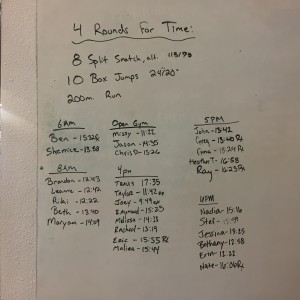 4 Rounds For Time:
8 Split Snatch, alt. 115/75
10 Box Jumps 24/20"
200m. Run
6am
Ben - 15:22
Sherrice - 13:58
8am
Brandon - 12:43
Leanne - 12:42
Riki - 12:22
Beth - 13:40
Maryam - 14:09
Open Gym
Missy - 11:22
Jason - 14:35
Chris D - 13:26
4pm
Travis 17:35
Taylor - 11:42
Joey - 9:49
Raymond - 15:23
Melissa - 14:23
Rachael - 13:19
Eric - 15:55 Rx
Malina - 15:44
5PM
John - 13:42
Greg - 13:40 Rx
- 13:24 Rx
Heather T. - 16:58
Ray - 16:23 Rx
6PM
Nadia - 15:16
Stef -
Jessina - 13:25
Bethany - 12:58
Erin - 12:22
Nate - 16:06 Rx